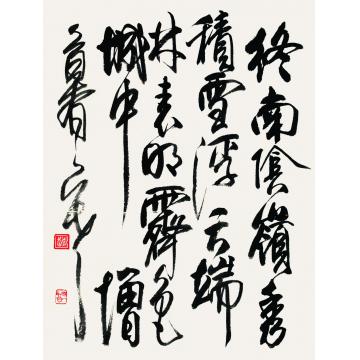 終南陰嶺秀
積雪浮云端
林表明霽色
城中增